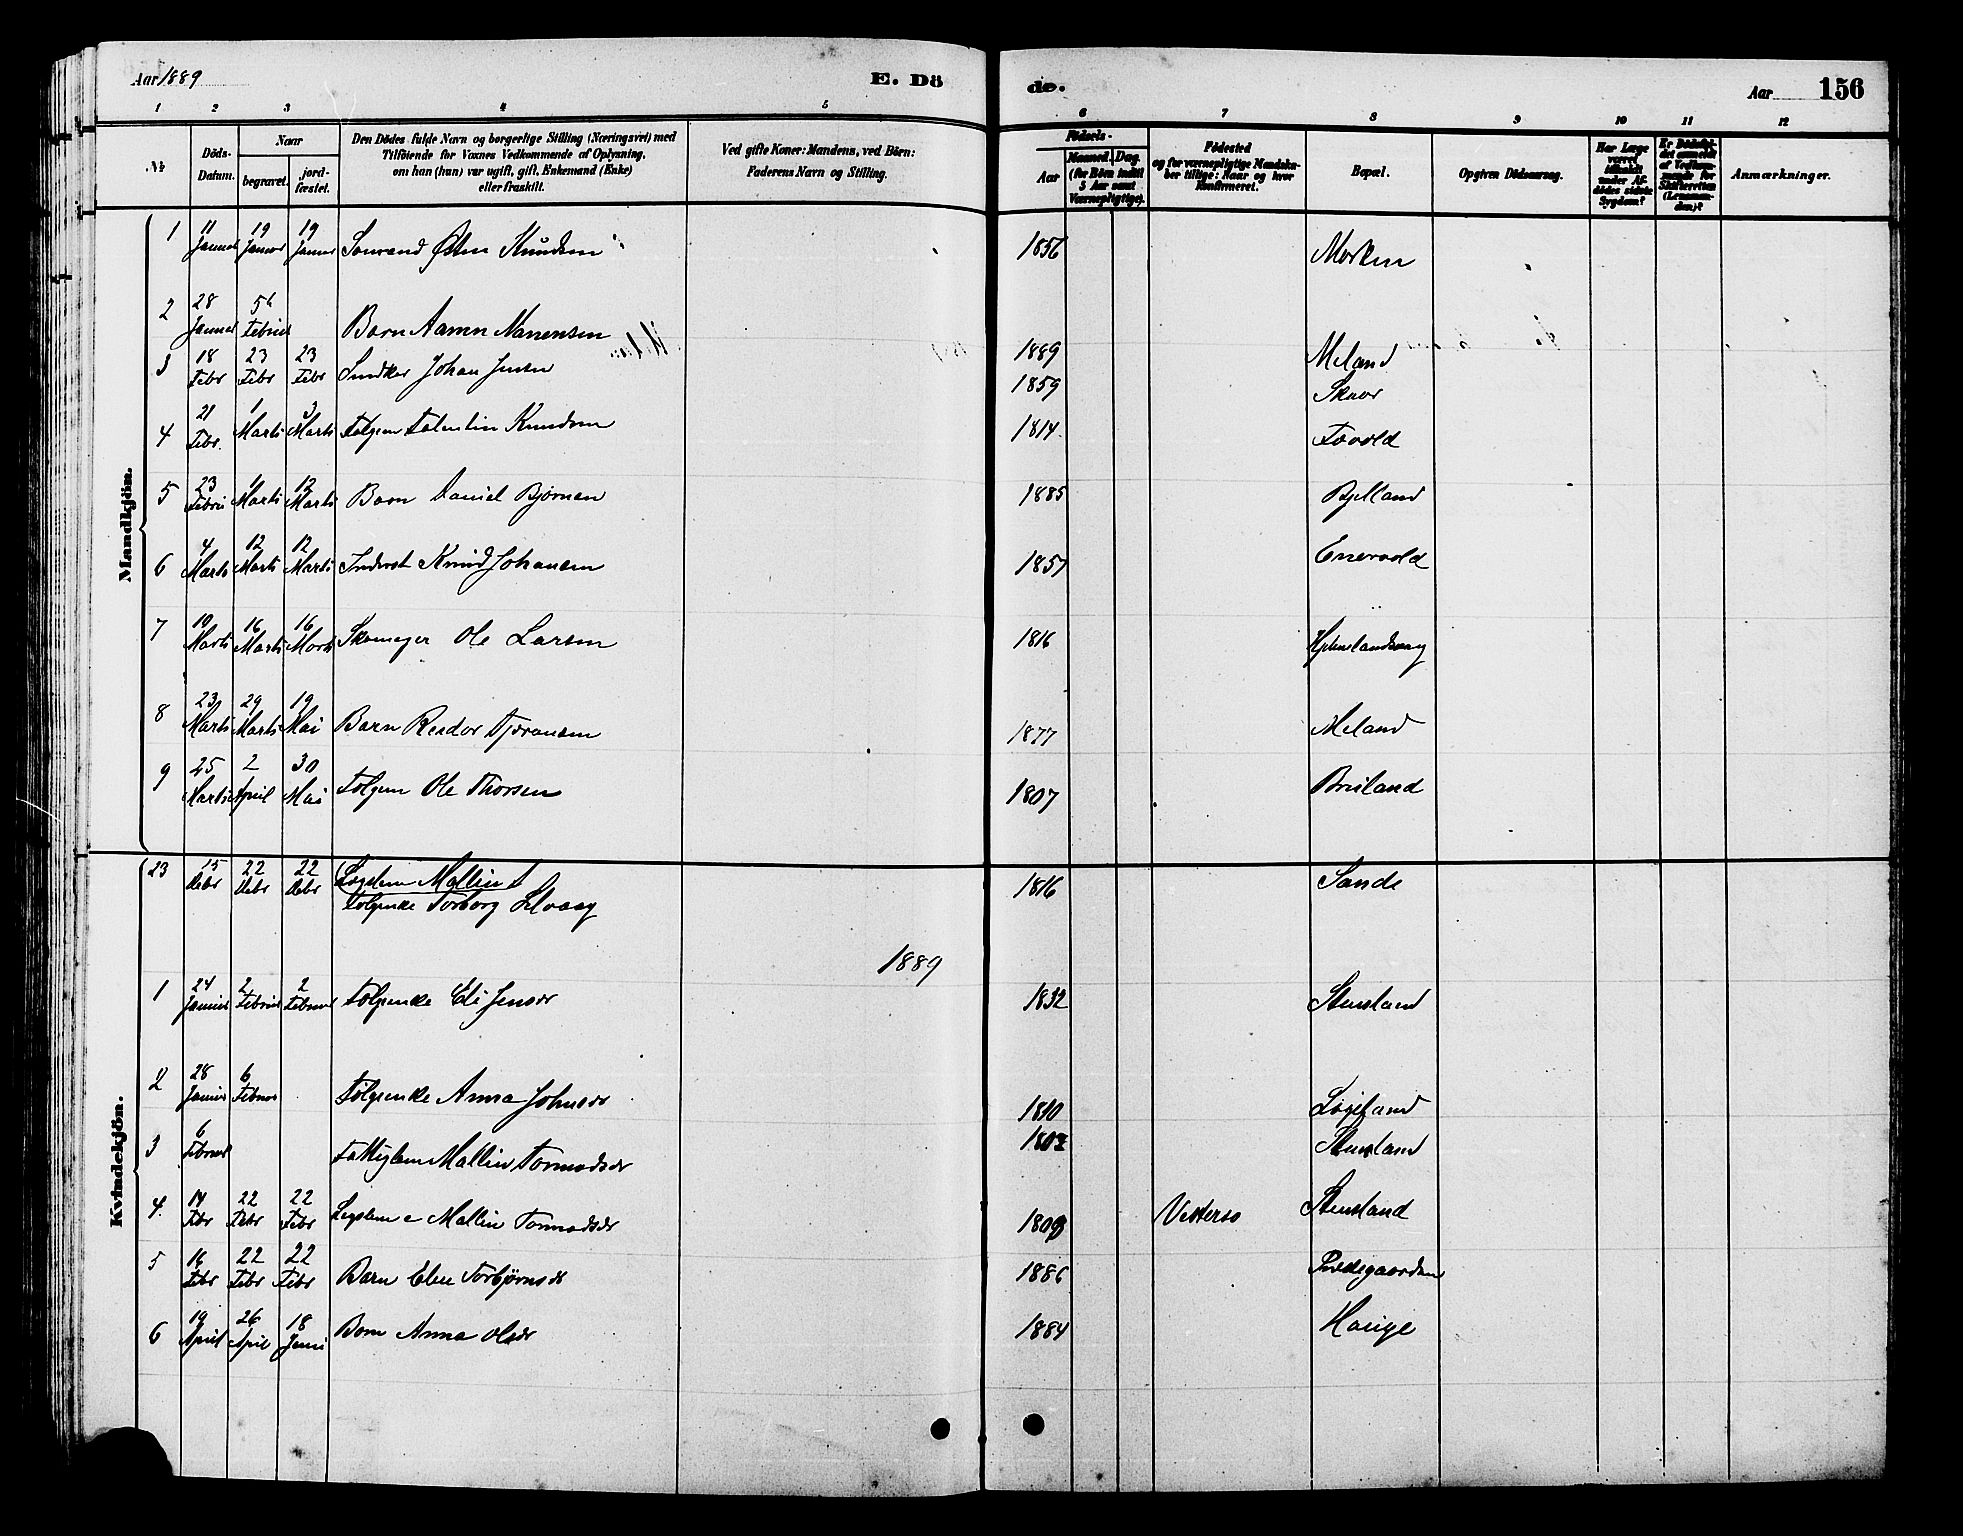 Aar 1889
E. Dö
de.
Aar 156
1 2 3 4 5 6 7 8 9 10 11 12
№
Döds-Datum.
Naar
begravet.
jord-fæstet.
Den Dödes fulde Navn og borgerlige Stilling (Næringsvei) med
Tilföiende for Voxnes Vedkommende af Oplysning,
om han (hun) var ugift, gift, Enkemand (Enke)
eller fraskilt.
Ved gifte Koner: Mandens, ved Börn:
Faderens Navn og Stilling.
Födsels-
Aar
Maaned. Dag.
(for Börn indtil
5 Aar samt
Værnepligtige).
Födested
og for værnepligtige Mandska-
ber tillige: Naar og hvor
konfirmeret.
Bopæl.
Opgiven Dödsaarsag.
Har Læge
været
tilkaldt
under Af-
dödes sidste
Sygdom?
Er Dödsfal-
det anmeldt
af Vedkom-
mende for
Skifteretten
(Lensman-
den)?
Anmærkninger.
Mandkjön.
1 11 Januar 19 Januar 19 Januar Østen Knudsen 1856 Morken
2 28 Januar 5te Februar Barn Aamn Nanensen 1889 Meland
3 18 Febr 23 Febr 23 Febr Johan Jensen 1859 Skaar
4 21 Febr. 1 Marts 3 Marts Folgem Knudsen 1814
5 23 Februar 1 Marts 12 Marts Barn Daniel Bjørnsen 1885 Bjelland
6 4 Marts 12 Marts 12 Marts Inderst Knud Johansen 1857 Enervold
7 10 Marts 16 Marts 16 Marts Skomager Ole Larsen 1816
8 23 Marts 29 Marts 19 Mai Barn Reidar 1877 Meland
9 25 Marts 2 April 30 Mai Folgem Ole Thorsen 1807
23 15 Debr 22 Debr 22 Debr Legslem Mallin 1816 Sande
Folgenke Torborg
1889
Kvindekjön.
1 24 Januar 2 Februar 2 Februar Folgenke Eli Jensdr 1832 Stensland
2 28 Januar 6 Februar Folgenke Anna Johnsdr 1810
3 6 Februar Fattiglem Mallin Tormodsdr 1802 Stensland
4. 14 Febr 22 Febr 22 Febr Legslem Mallin Tormodsdr 1808 Stensland
5 16 Febr 22 Febr 22 Febr Barn Elen Torbjørnsdr 1886 Prestegaarden
6 19 April 26 April 18 Juni Barn Anna Olsdr 1884 Hauge